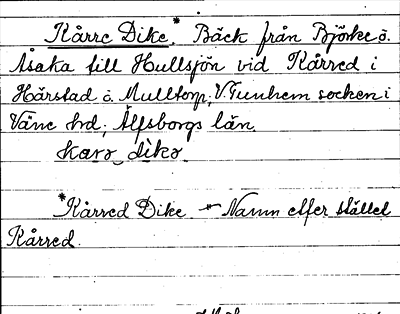 Kårre Dike.* Bäck från Björke ö.
Åsaka till Hullsjön vid Kårred i
Hårstad o. Mulltorp, V. Tunhem socken i
Väne hd; Älfsborgs län.
karə dikə.
*Kårred Dike - Namn efter stället
Kårred.